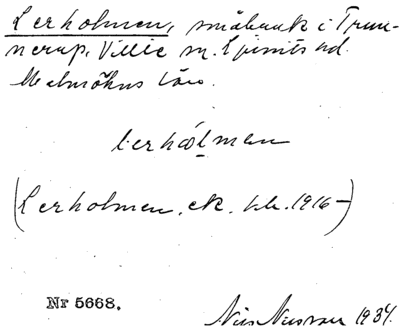 Lerholmen, småbruk i Trun-
nerup, Villie sn. Ljunits hd.
Malmöhus län.
lerhålmen
(Lerholmen, ek. kb. 1916-)
Nr 5668.
Nils 1934.